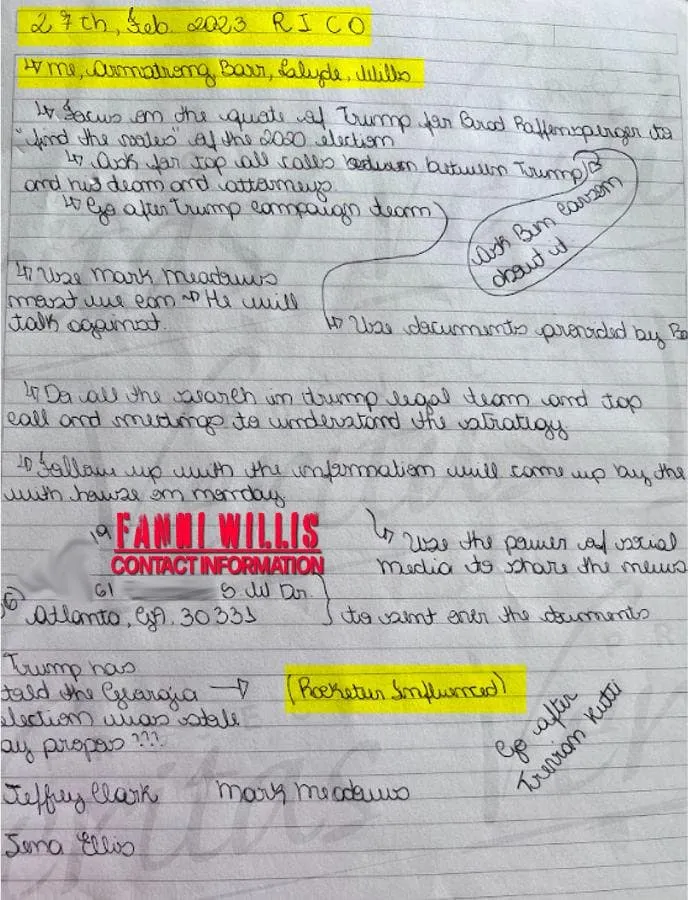 27th, Feb. 2023 RICO
↳ me, Armstrong, Barr, Clyde, Mills
↳ Focus on the quote of Trump for Brad Raffensperger to
"find the votes" of the 2020 election
↳ Ask for top all calls between Trump
and his team and attorneys
↳ Go after Trump campaign team
Ask Ben Carson
about it
↳ Use Mark Meadows
most we can → He will
talk against.
↳ Use documents provided by
↳ Do all the search in trump legal team and top
call and meetings to understand the stratigy
↳ Follow up with the information will come up by the
with house on monday
FANNI WILLIS
CONTACT INFORMATION
↳ Use the power of social
media to share the news
61 S W Dr.
Atlanta, Ga, 30331
to sent over the documents
Trump has
told the Georgia →
election was stole
ay propos???
(Rocketur Influenced)
Go after
Trevian Kutti
Jeffrey Clark Mark Meadows
Jena Ellis